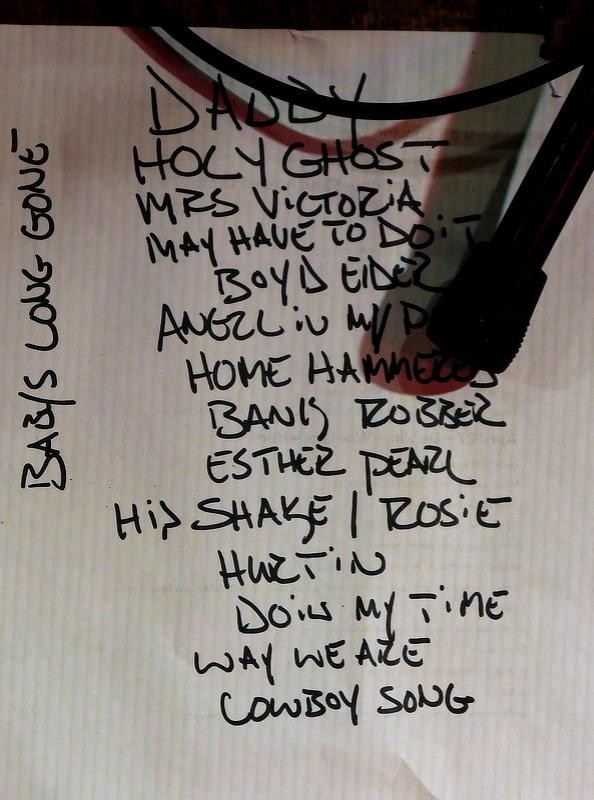 DADDY
HOLY GHOST
MRS VICTORIA
MAY HAVE TO DO IT
BOYD EIDER
ANGEL IN MY
HOME HAMMERED
BANK ROBBER
ESTHER PEARL
HIP SHAKE / ROSIE
HURTIN
DOIN MY TIME
WAY WE ARE
COWBOY SONG
BABYS LONG GONE